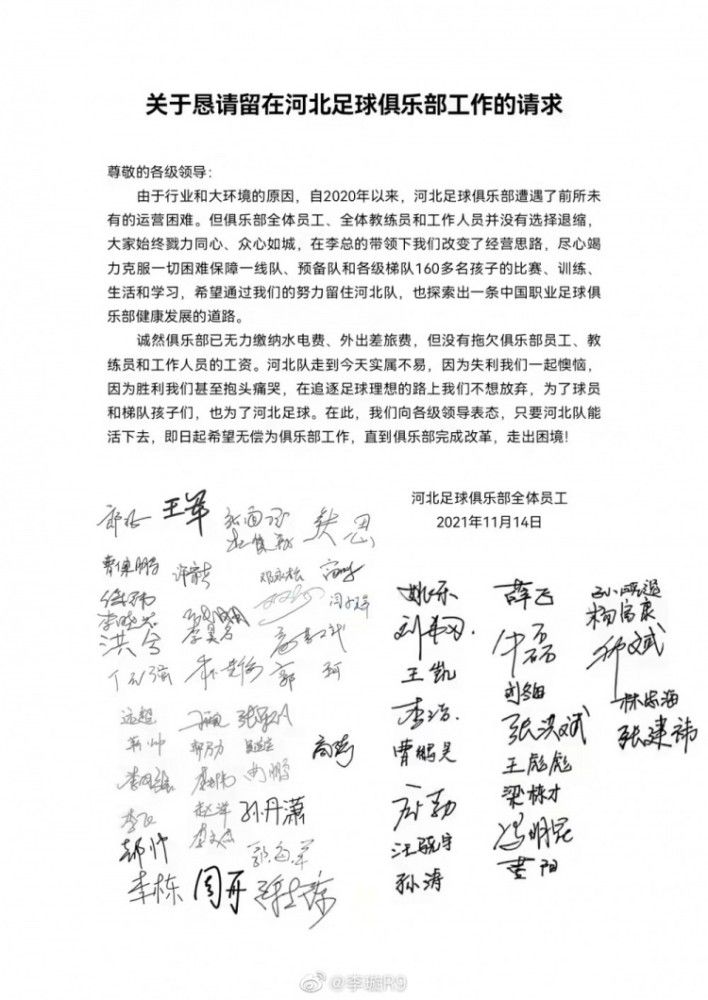 关于恳请留在河北足球俱乐部工作的请求
尊敬的各级领导：
由于行业和大环境的原因，自2020年以来，河北足球俱乐部遭遇了前所未
有的运营困难。但俱乐部全体员工、全体教练员和工作人员并没有选择退缩，
大家始终戮力同心、众心如城，在李总的带领下我们改变了经营思路，尽心竭
力克服一切困难保障一线队、预备队和各级梯队160多名孩子的比赛、训练、
生活和学习，希望通过我们的努力留住河北队，也探索出一条中国职业足球俱
乐部健康发展的道路。
诚然俱乐部已无力缴纳水电费、外出差旅费，但没有拖欠俱乐部员工、教
练员和工作人员的工资。河北队走到今天实属不易，因为失利我们一起懊恼，
因为胜利我们甚至抱头痛哭，在追逐足球理想的路上我们不想放弃，为了球员
和梯队孩子们，也为了河北足球。在此，我们向各级领导表态，只要河北队能
活下去，即日起希望无偿为俱乐部工作，直到俱乐部完成改革，走出困境！
河北足球俱乐部全体员工
2021年11月14日
王军
姚乐 薛飞
杨富康
王凯
刘翔
李浩 张洪斌 林忠海
曹鹏昊 张建祎
王彪彪
高勤
梁栋才
孙丹潇
冯明昆
汪晓宇
黄阳
孙涛
李栋 周开
@李璇R9